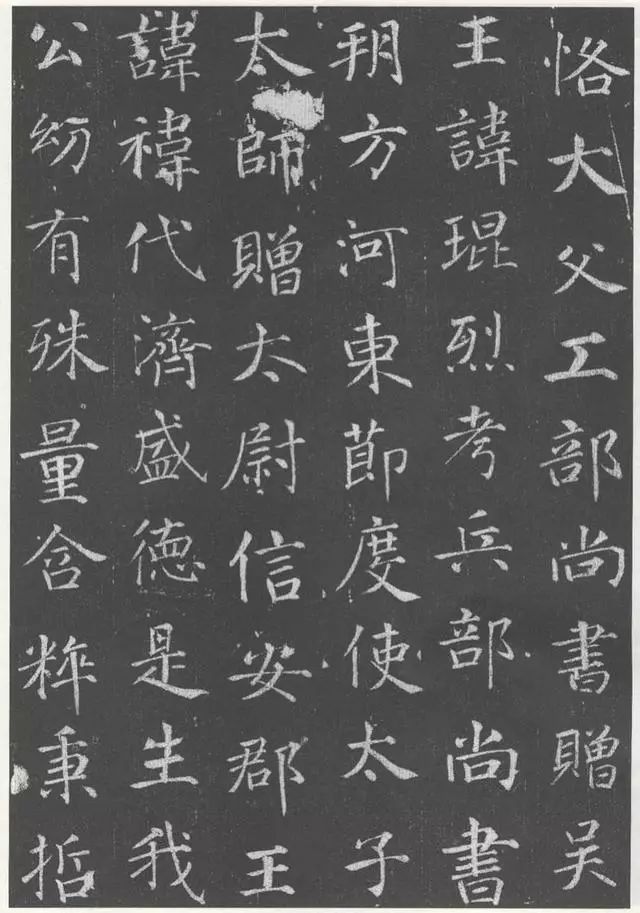 恪大父工部尚書贈吴
王諱琨烈考兵部尚書
朔方河東節度使太子
太師贈太尉信安郡王
諱禕代濟盛德是生我
公紛有殊量含粹秉哲